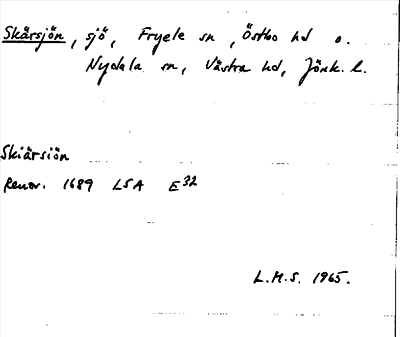 Skärsjön, sjö, Fryele sn, Östbo hd o.
Nydala sn, Västra hd, Jönk. l.
Skiärsiön
Renov. 1689 LSA E32
L.M.S. 1965.